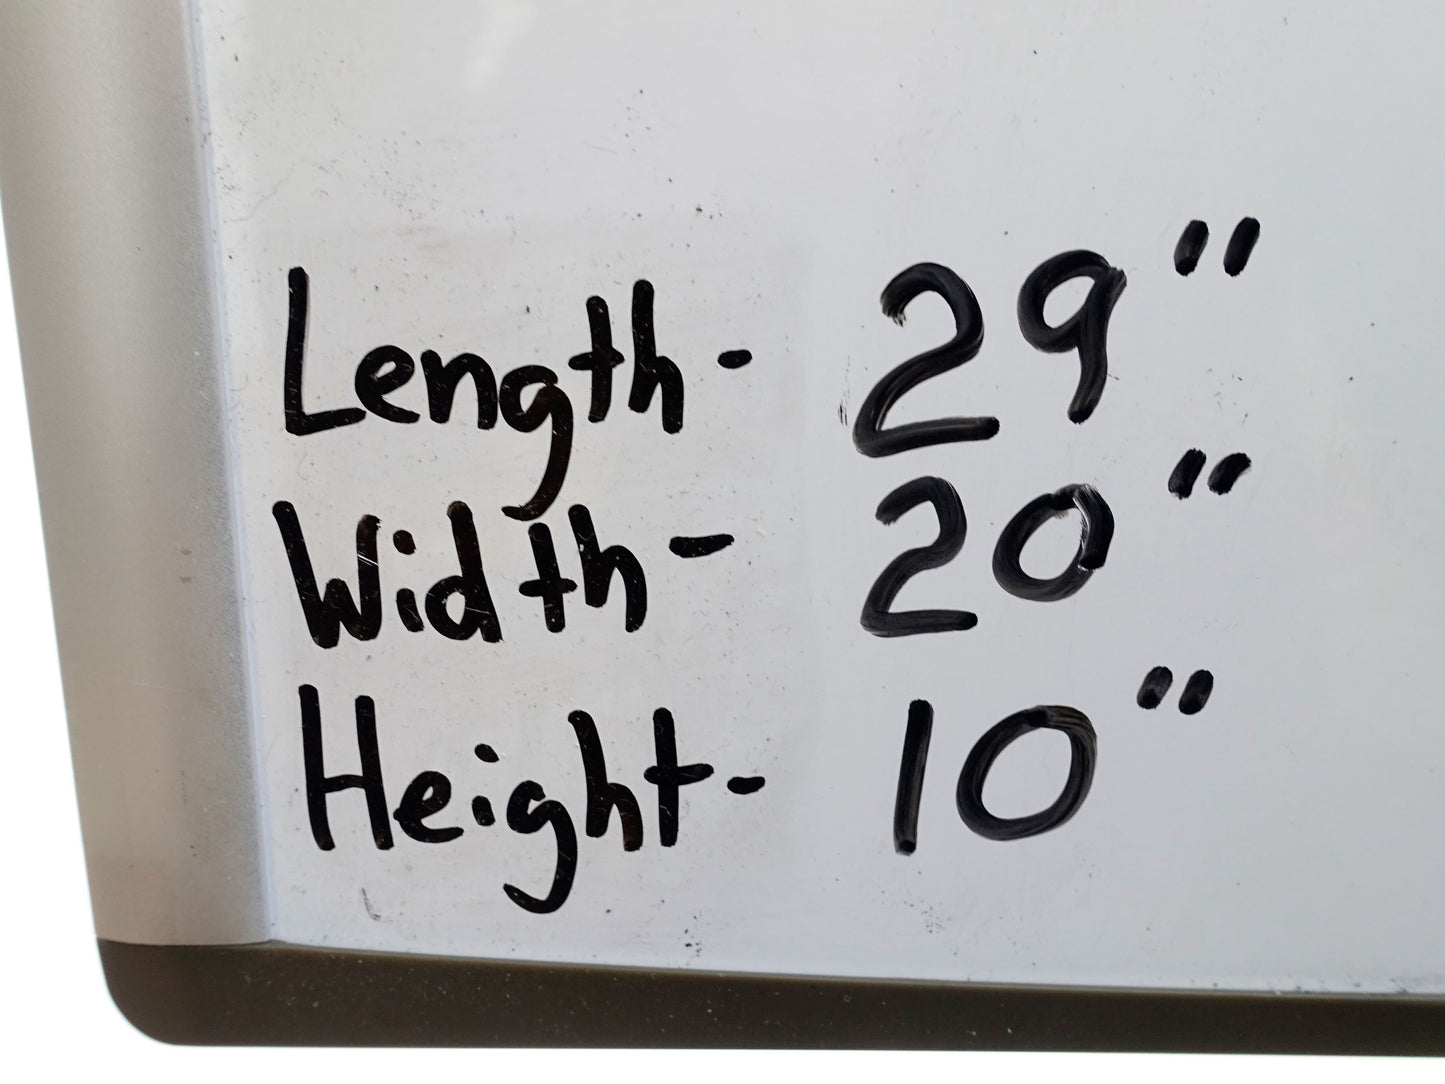 Length- 29"
Width- 20"
Height- 10"